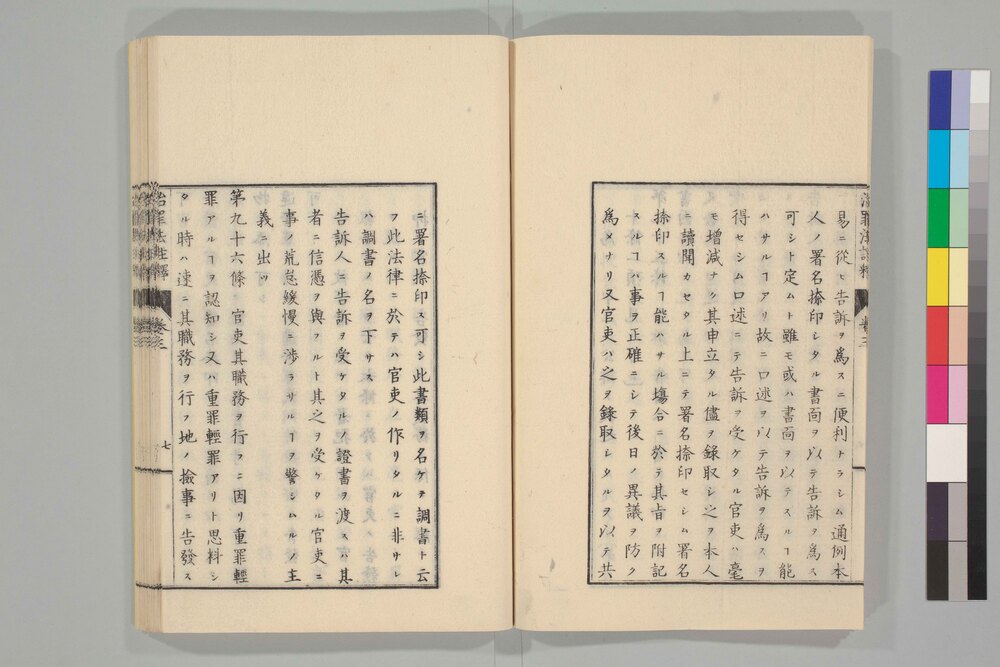 易ニ從ヒ告訴ヲ爲スニ便利トラシム通例本
人ノ署名捺印シタル書面ヲ以テ告訴ヲ爲ス
可シト定ムト雖モ或ハ書面ヲ以テスルヿ能
ハサルヿアリ故ニ口述ヲ以テ告訴ヲ爲スヲ
得セシム口述ニテ告訴ヲ受ケタル官吏ハ毫
モ增減ナク其申立タル儘ヲ錄取シ之ヲ本人
ニ讀聞カセタル上ニテ署名捺印セシム署名
捺印スルヿ能ハサル塲合ニ於テ其旨ヲ附記
スルヿハ事ヲ正確ニシテ後日ノ異議ヲ防ク
爲メナリ又官吏ハ之ヲ錄取シタルヲ以テ共
ニ署名捺印ス可シ此書類ヲ名ケテ調書ト云
フ此法律ニ於テハ官吏ノ作リタルニ非サレ
ハ調書ノ名ヲ下サス
告訴人ニ告訴ヲ受ケタルノ證書ヲ渡スハ其
者ニ信憑ヲ與フルト其之ヲ受ケタル官吏ニ
事ノ荒怠緩慢ニ涉ラサルヿヲ警シムルノ主
義ニ出ツ
第九十六條 官吏其職務ヲ行フニ因リ重罪輕
罪アルヿヲ認知シ又ハ重罪輕罪アリト思料シ
タル時ハ速ニ其職務ヲ行フ地ノ撿事ニ告發ス
治罪法註釋 卷三 七